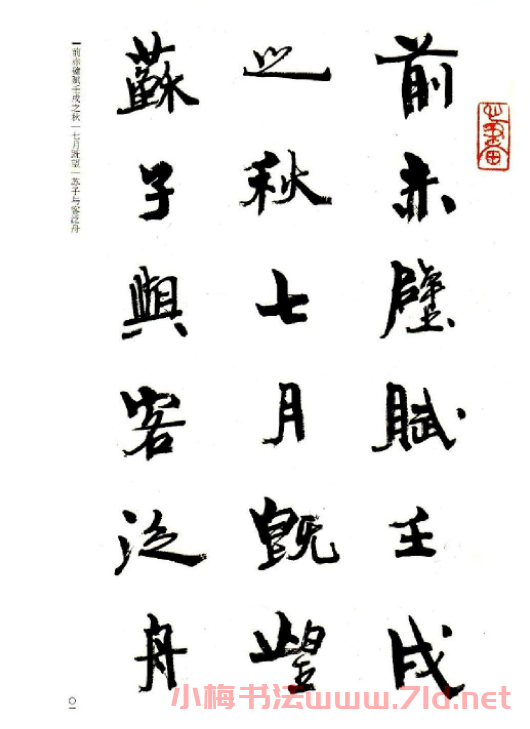 前赤壁賦壬戌
之秋七月既望
蘇子與客泛舟
前赤壁赋壬戌之秋|七月既望|苏子与客泛舟
小梅书法www.7ld.net